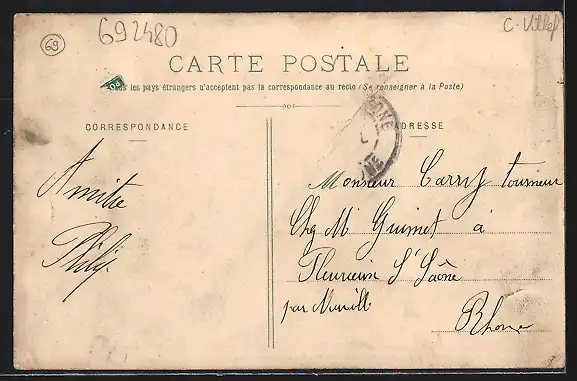 69
692480
C-Villef
CARTE POSTALE
les pays étrangers n'acceptent pas la correspondance au recto (Se renseigner à la Poste)
CORRESPONDANCE
ADRESSE
RHONE
Amitié
Monsieur Carry tourneur
Chez Mr Guimet à
Fleurieux S/ Saône
par Neuville
Rhone